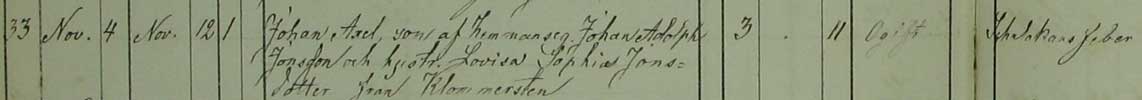 33 Nov. 4 Nov. 12 1 Johan Axel, son af Hemmanseg. Johan Adolph 3 . 11 Ogift Skarlakansfeber
Jonsson och hustr. Lovisa Sophia Jons=
dotter från Klommersten